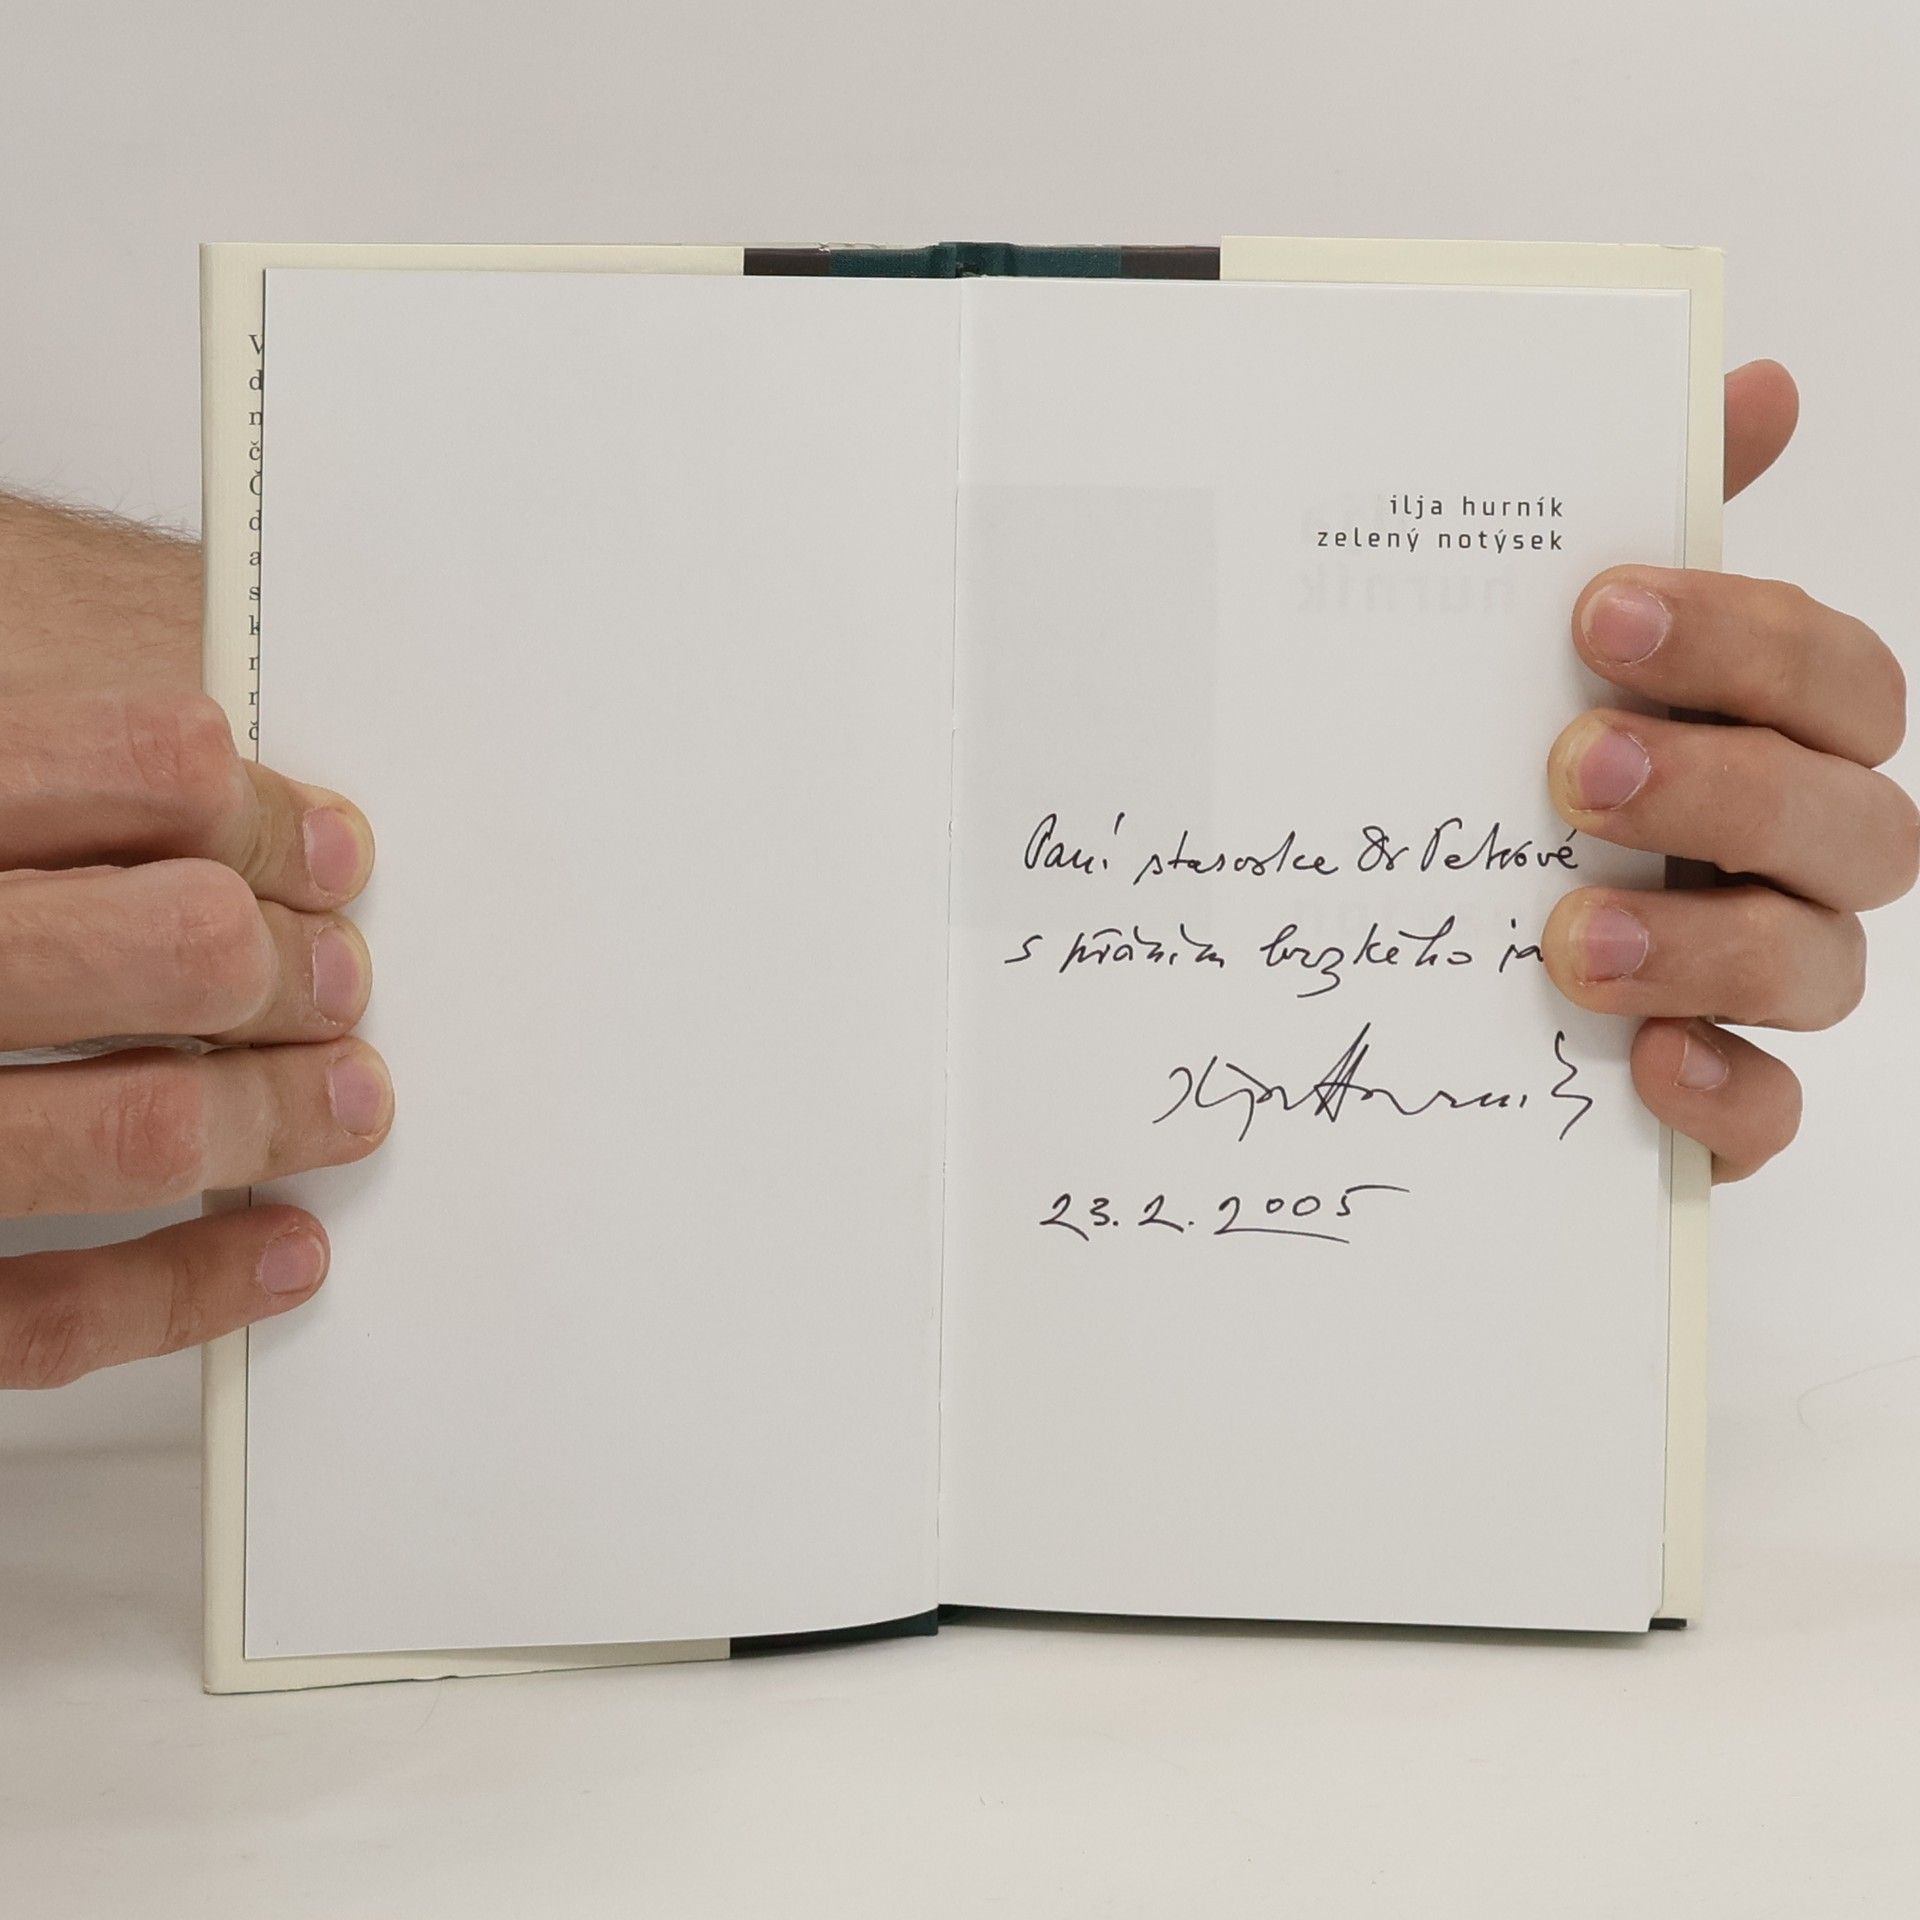 V
d
n
č
Č
d
a
s
k
n
n
č
ilja hurník
zelený notýsek
Paní starostce Dr Petrové
s přáním brzkého ja
Ilja Hurník
23. 2. 2005